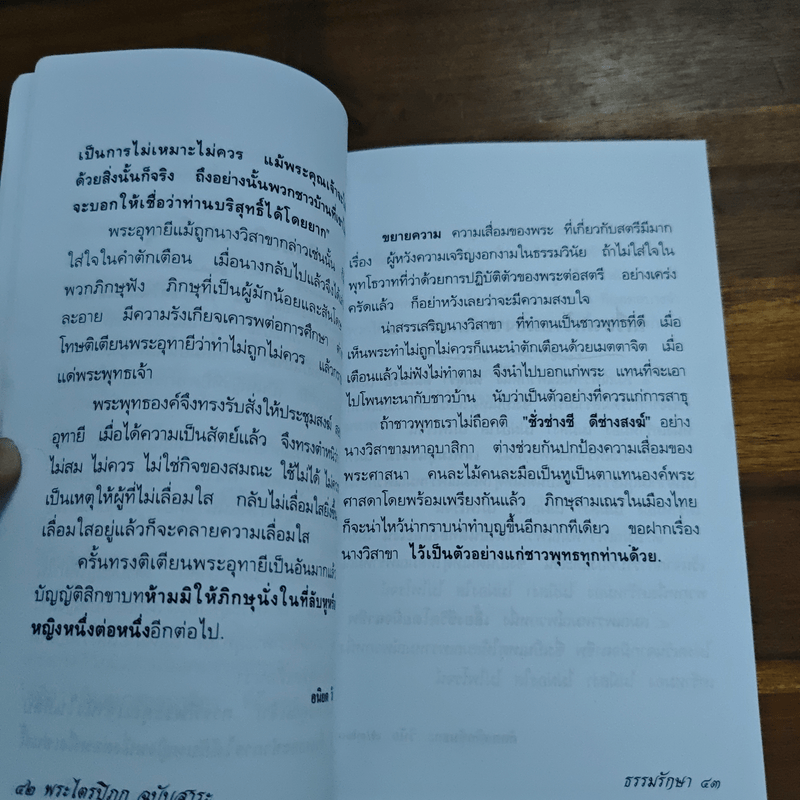 เป็นการไม่เหมาะไม่ควร แม้พระคุณเจ้าจะ
ด้วยสิ่งนั้นก็จริง ถึงอย่างนั้นพวกชาวบ้าน
จะบอกให้เชื่อว่าท่านบริสุทธิ์ได้โดยยาก"
พระอุทายีแม้ถูกนางวิสาขากล่าวเช่นนั้น
ใส่ใจในคำตักเตือน เมื่อนางกลับไปแล้วจึง
พวกภิกษุฟัง ภิกษุที่เป็นผู้มักน้อยและสันโดษ
ละอาย มีความรังเกียจเคารพต่อการศึกษา
โทษติเตียนพระอุทายีว่าทำไม่ถูกไม่ควร แล้ว
แด่พระพุทธเจ้า
พระพุทธองค์จึงทรงรับสั่งให้ประชุมสงฆ์
อุทายี เมื่อได้ความเป็นสัตย์แล้ว จึงทรงตำหนิ
ไม่สม ไม่ควร ไม่ใช่กิจของสมณะ ใช้ไม่ได้
เป็นเหตุให้ผู้ที่ไม่เลื่อมใส กลับไม่เลื่อมใสยิ่งขึ้น
เลื่อมใสอยู่แล้วก็จะคลายความเลื่อมใส
ครั้นทรงติเตียนพระอุทายีเป็นอันมากแล้ว
บัญญัติสิกขาบทห้ามมิให้ภิกษุนั่งในที่ลับหูหรือ
หญิงหนึ่งต่อหนึ่งอีกต่อไป.
อนิยต
๔๒ พระไตรปิฎก ฉบับสาระ
ขยายความ ความเสื่อมของพระ ที่เกี่ยวกับสตรีมีมาก
เรื่อง ผู้หวังความเจริญงอกงามในธรรมวินัย ถ้าไม่ใส่ใจใน
พุทโธวาทที่ว่าด้วยการปฏิบัติตัวของพระต่อสตรี อย่างเคร่ง
ครัดแล้ว ก็อย่าหวังเลยว่าจะมีความสงบใจ
น่าสรรเสริญนางวิสาขา ที่ทำตนเป็นชาวพุทธที่ดี เมื่อ
เห็นพระทำไม่ถูกไม่ควรก็แนะนำตักเตือนด้วยเมตตาจิต เมื่อ
เตือนแล้วไม่ฟังไม่ทำตาม จึงนำไปบอกแก่พระ แทนที่จะเอา
ไปโพนทะนากับชาวบ้าน นับว่าเป็นตัวอย่างที่ควรแก่การสาธุ
ถ้าชาวพุทธเราไม่ถือคติ "ชั่วช่างชี ดีช่างสงฆ์" อย่าง
นางวิสาขามหาอุบาสิกา ต่างช่วยกันปกป้องความเสื่อมของ
พระศาสนา คนละไม้คนละมือเป็นหูเป็นตาแทนองค์พระ
ศาสดาโดยพร้อมเพรียงกันแล้ว ภิกษุสามเณรในเมืองไทย
ก็จะน่าไหว้น่ากราบน่าทำบุญขึ้นอีกมากทีเดียว ขอฝากเรื่อง
นางวิสาขา ไว้เป็นตัวอย่างแก่ชาวพุทธทุกท่านด้วย.
ธรรมรักษา ๔๓